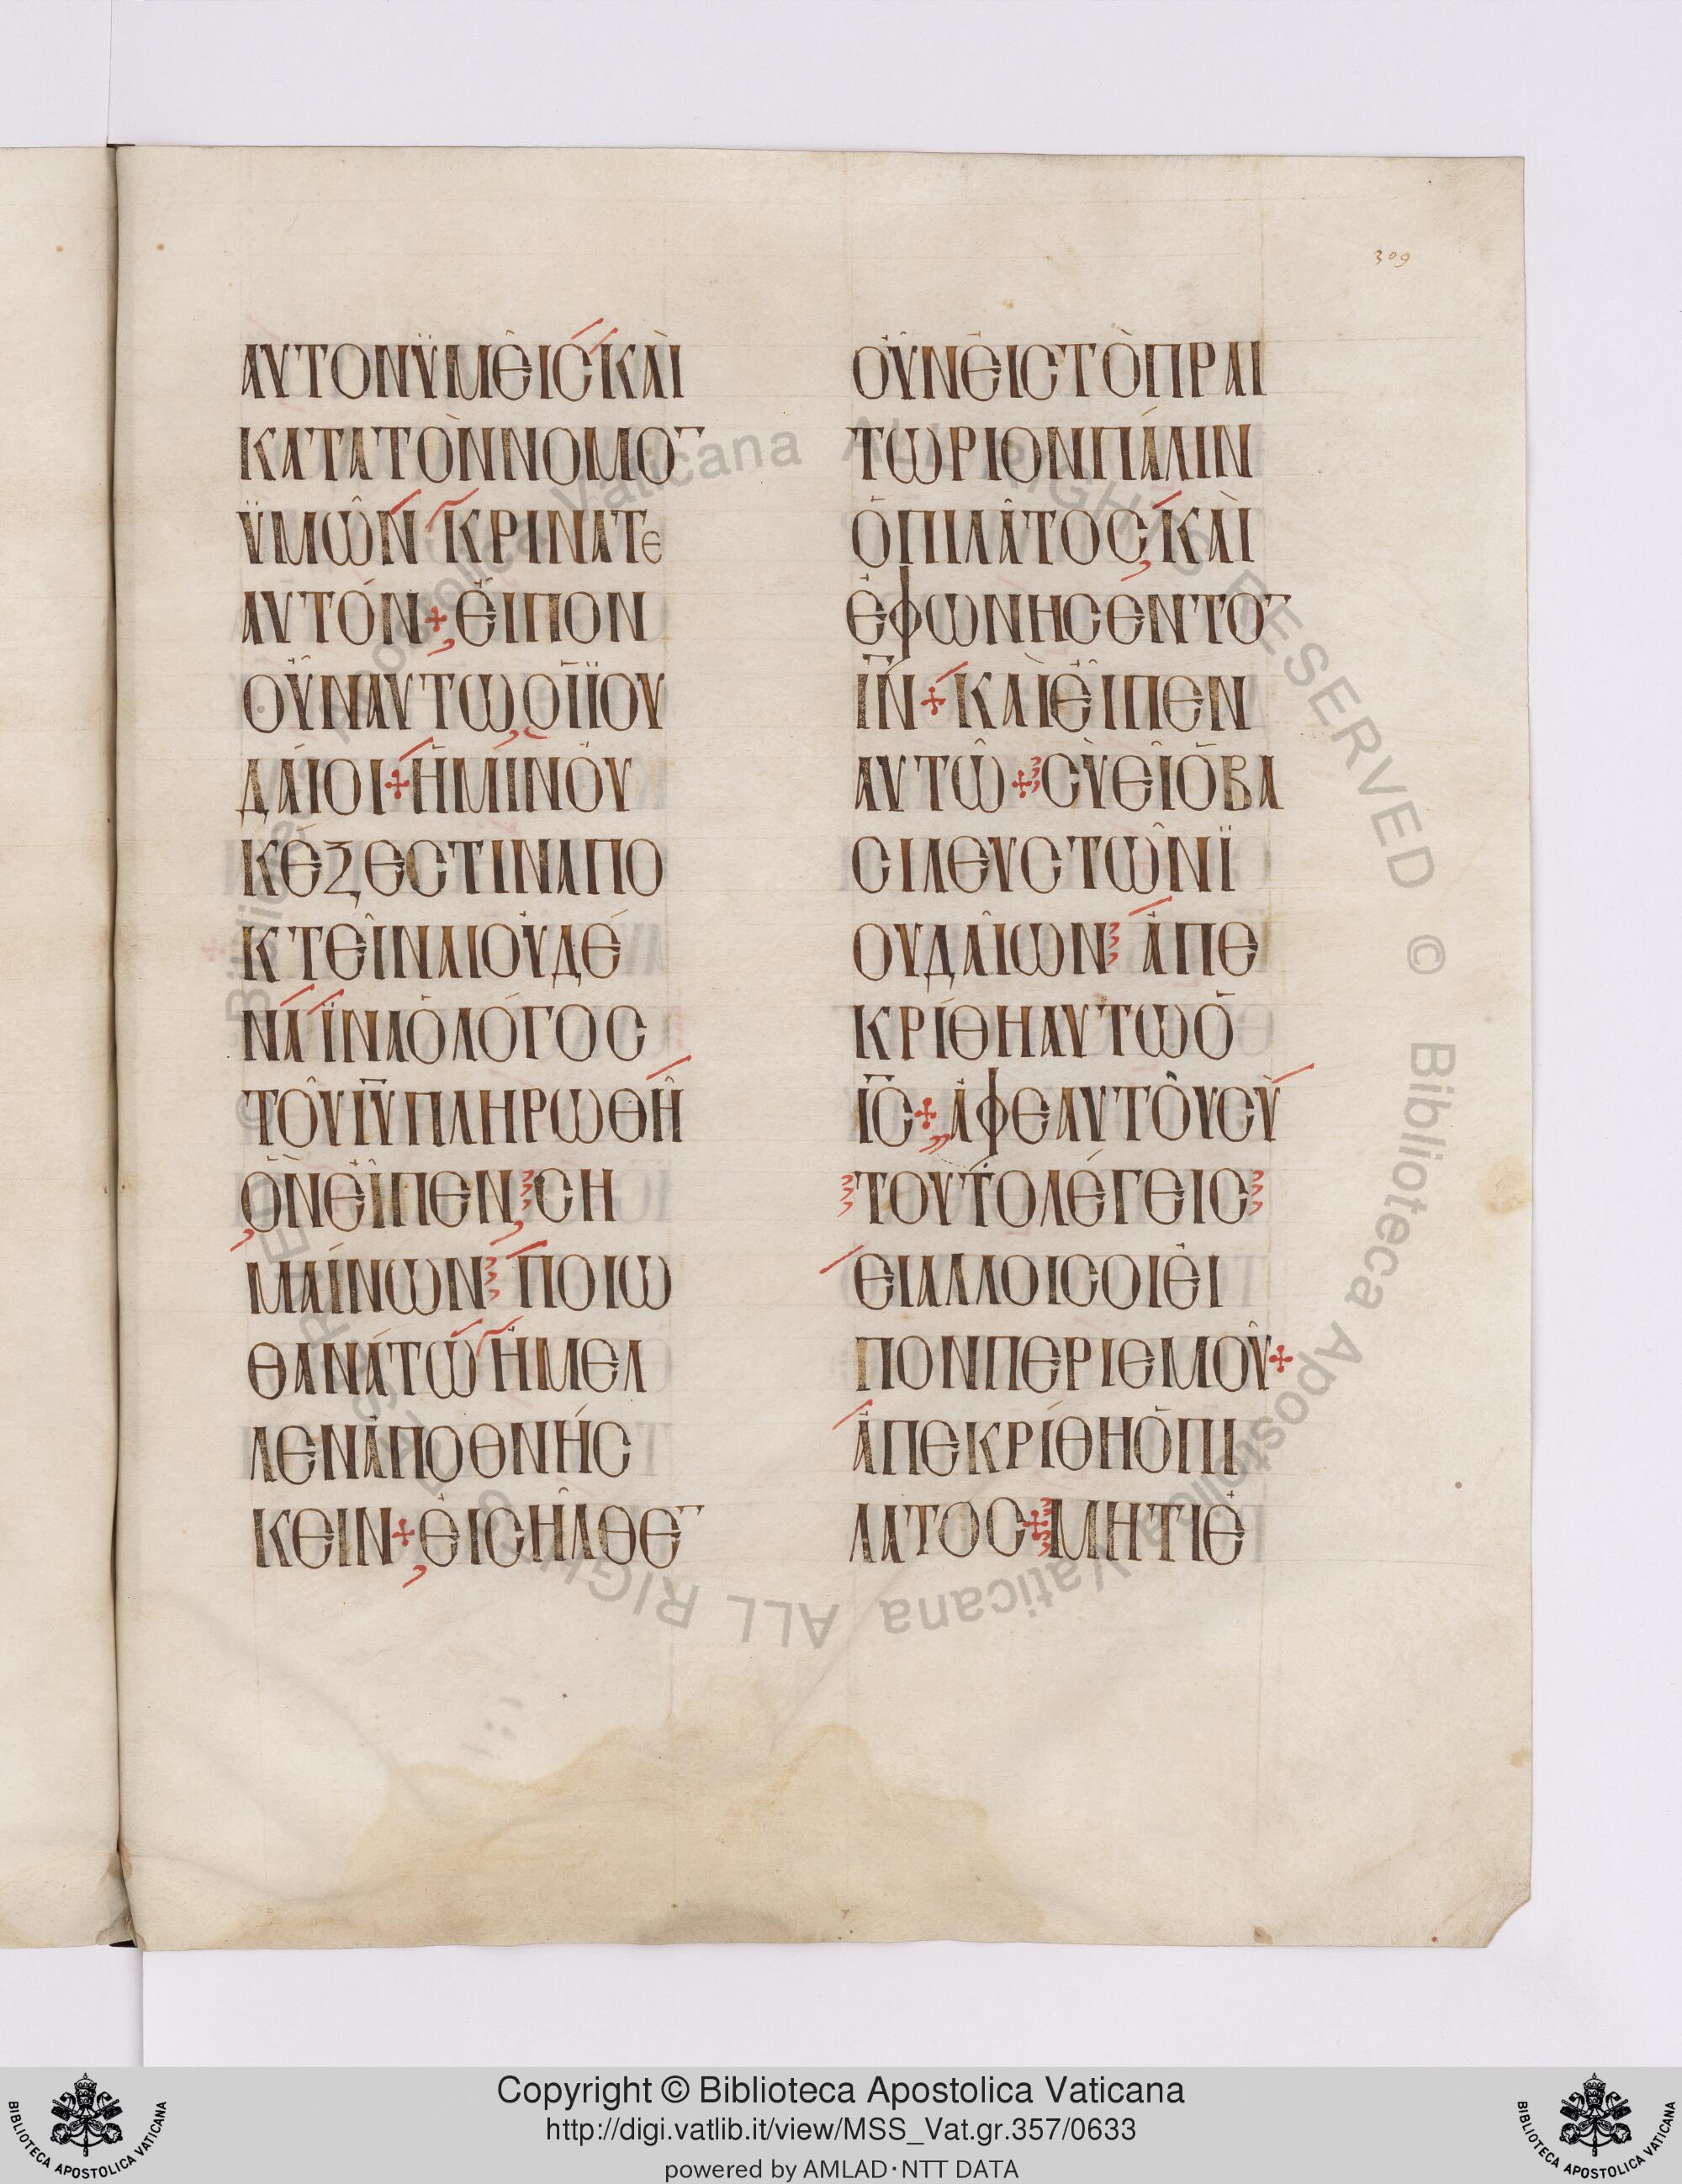 309
ΑΥΤΟΝΫΜΕΙCΚΑΙ
ΚΑΤΑΤΟΝΝΟΜΟ¯
ΫΜΩΝΚΡΙΝΑΤΕ
ΑΥΤΟΝ+ΕΙΠΟΝ
ΟΥΝΑΥΤΩΟΙΪΟΥ
ΔΑΙΟΙ+ΗΜΙΝΟΥ
ΚΕΞΕCΤΙΝΑΠΟ
ΚΤΕΙΝΑΙΟΥΔΕ
ΝΑΪΝΑΟΛΟΓΟC
ΤΟΥΙΥΠΛΗΡΩΘΗ
ΟΝΕΙΠΕΝCΗ
ΜΑΙΝΩΝΠΟΙΩ
ΘΑΝΑΤΩΗΜΕΛ
ΛΕΝΑΠΟΘΝΗC
ΚΕΙΝ+ΕΙCΗΛΘΕ¯
ΟΥΝΕΙCΤΟΠΡΑΙ
ΤΩΡΙΟΝΠΑΛΙΝ
ΟΠΙΛΑΤΟCΚΑΙ
ΕΦΩΝΗCΕΝΤΟ¯
ΙΝ+ΚΑΙΕΙΠΕΝ
ΑΥΤΩ+CΥΕΙΟΒΑ
CΙΛΕΥCΤΩΝΪ
ΟΥΔΑΙΩΝΑΠΕ
ΚΡΙΘΗΑΥΤΩΟ
ΙC+ΑΦΕΑΥΤΟΥCΥ
ΤΟΥΤΟΛΕΓΕΙC
ΕΙΑΛΛΟΙCΟΙΕΙ
ΠΟΝΠΕΡΙΕΜΟΥ+
ΑΠΕΚΡΙΘΗΟΠΙ
ΛΑΤΟC+ΜΗΤΙΕ
© Biblioteca Apostolica Vaticana ALL RIGHTS RESERVED © Biblioteca Apostolica Vaticana ALL RIGHTS RESERVED
Copyright © Biblioteca Apostolica Vaticana
http://digi.vatlib.it/view/MSS_Vat.gr.357/0633
powered by AMLAD·NTT DATA
BIBLIOTECA APOSTOLICA VATICANA
BIBLIOTECA APOSTOLICA VATICANA